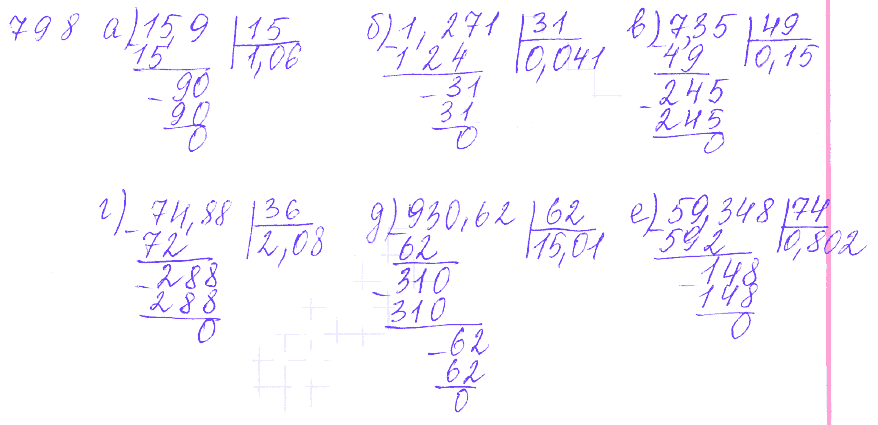 798 а) 15,9 | 15 б) 1,271 | 31 в) 7,35 | 49
15 1,06 - 124 0,041 - 49 0,15
- 90 - 31 - 245
90 31 245
0 0 0
г) - 74,88 | 36 д) - 930,62 | 62 е) - 59,348 | 74
72 2,08 62 15,01 592 0,802
- 288 - 310 - 148
288 310 148
0 - 62 0
62
0